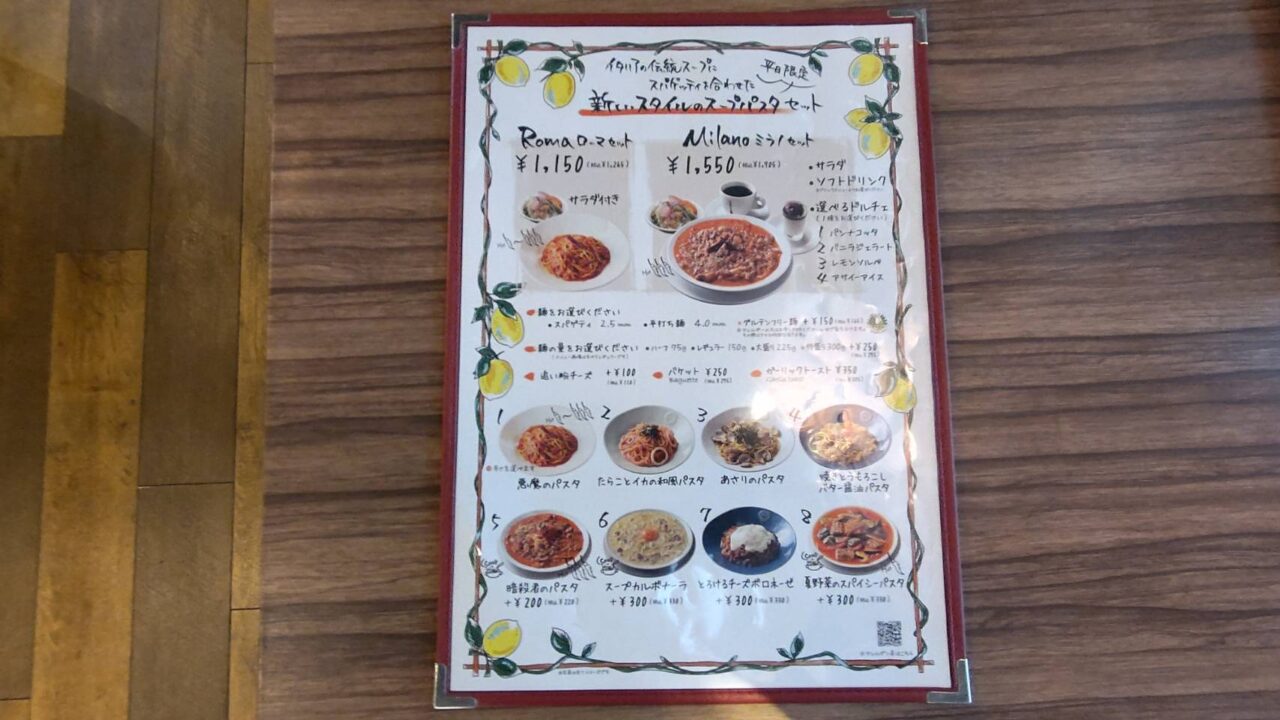 イタリアの伝統スープに
スパゲッティを合わせた
平日限定
新しいスタイルのスープパスタセット
Roma ローマセット
¥1,150 (税込¥1,265)
サラダ付き
Milano ミラノセット
¥1,550 (税込¥1,705)
•サラダ
•ソフトドリンク
•選べるドルチェ
(1種をお選びください)
1 パンナコッタ
2 バニラジェラート
3 レモンソルベ
4 アサイーアイス
麺をお選びください
•スパゲティ 2.5mm •平打ち麺 4.0mm •グルテンフリー麺 +¥150
麺の量をお選びください •ハーフ75g •レギュラー150g •大盛り225g •特盛り300g +¥250
追い粉チーズ +¥100 (税込¥110)
バケット ¥250
Baguette (税込¥275)
ガーリックトースト ¥350
1
悪魔のパスタ
2
たらことイカの和風パスタ
3
あさりのパスタ
4
焼きとうもろこし
バター醤油パスタ
5
暗殺者のパスタ
+¥200 (税込¥220)
6
スープカルボナーラ
+¥300 (税込¥330)
7
とろけるチーズボロネーゼ
+¥300 (税込¥330)
8
夏野菜のスパイシーパスタ
+¥300 (税込¥330)